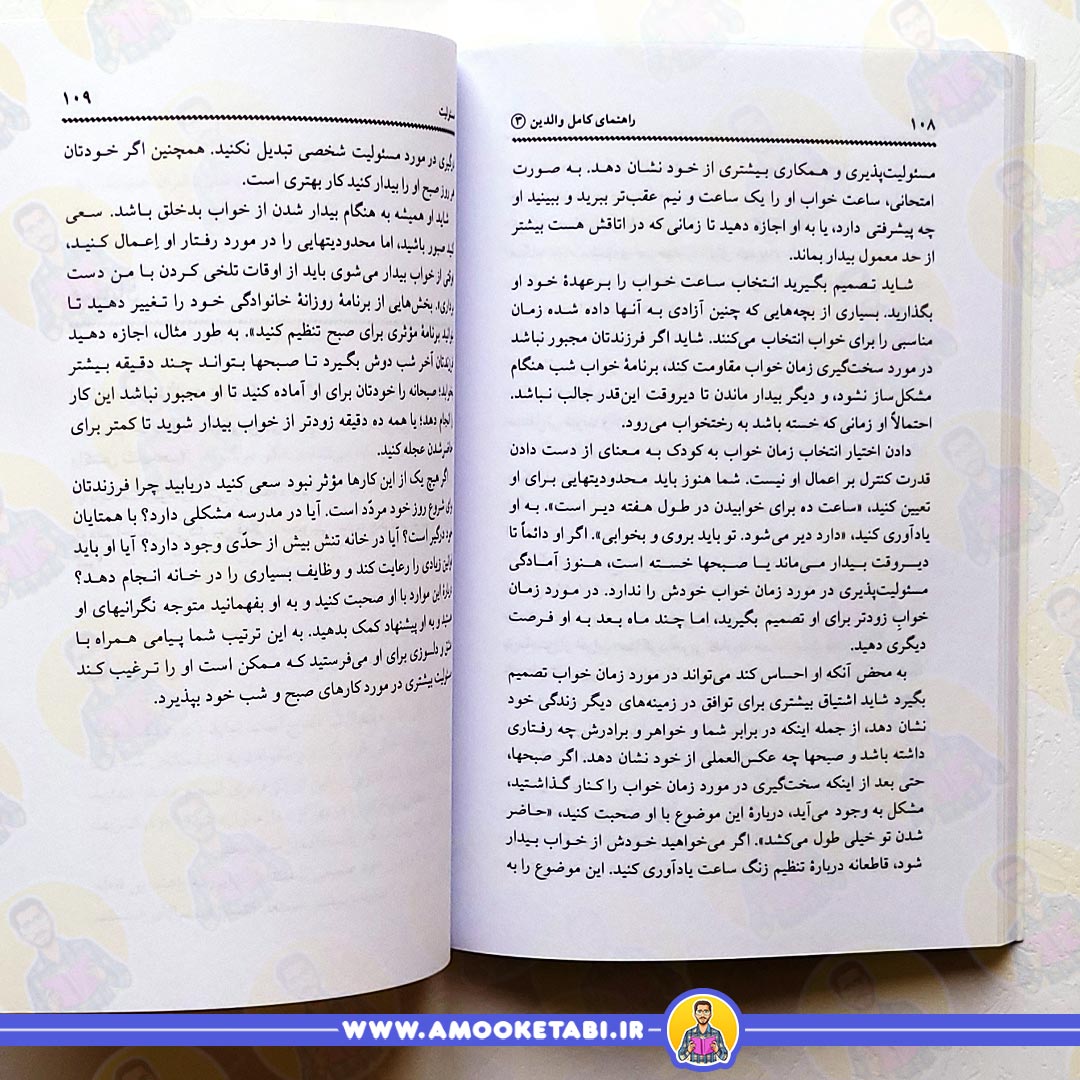 ۱۰۸
راهنمای کامل والدین ۳
مسئولیت‌پذیری و همکاری بیشتری از خود نشان دهد. به صورت
امتحانی، ساعت خواب او را یک ساعت و نیم عقب‌تر ببرید و ببینید او
چه پیشرفتی دارد، یا به او اجازه دهید تا زمانی که در اتاقش هست بیشتر
از حد معمول بیدار بماند.
شاید تصمیم بگیرید انتخاب ساعت خواب را برعهدهٔ خود او
بگذارید. بسیاری از بچه‌هایی که چنین آزادی به آنها داده شده زمان
مناسبی را برای خواب انتخاب می‌کنند. شاید اگر فرزندتان مجبور نباشد
در مورد سخت‌گیری زمان خواب مقاومت کند، برنامهٔ خواب شب هنگام
مشکل‌ساز نشود، و دیگر بیدار ماندن تا دیروقت این‌قدر جالب نباشد.
احتمالاً او زمانی که خسته باشد به رختخواب می‌رود.
دادن اختیار انتخاب زمان خواب به کودک به معنای از دست دادن
قدرت کنترل بر اعمال او نیست. شما هنوز باید محدودیتهایی برای او
تعیین کنید، «ساعت ده برای خوابیدن در طول هفته دیر است». به او
یادآوری کنید، «دارد دیر می‌شود. تو باید بروی و بخوابی». اگر او دائماً تا
دیروقت بیدار می‌ماند یا صبحها خسته است، هنوز آمادگی
مسئولیت‌پذیری در مورد زمان خواب خودش را ندارد. در مورد زمان
خواب زودتر برای او تصمیم بگیرید، اما چند ماه بعد به او فرصت
دیگری دهید.
به محض آنکه او احساس کند می‌تواند در مورد زمان خواب تصمیم
بگیرد شاید اشتیاق بیشتری برای توافق در زمینه‌های دیگر زندگی خود
نشان دهد، از جمله اینکه در برابر شما و خواهر و برادرش چه رفتاری
داشته باشد و صبحها چه عکس‌العملی از خود نشان دهد. اگر صبحها،
حتی بعد از اینکه سخت‌گیری در مورد زمان خواب را کنار گذاشتید،
مشکل به وجود می‌آید، دربارهٔ این موضوع با او صحبت کنید، «حاضر
شدن تو خیلی طول می‌کشد». اگر می‌خواهید خودش از خواب بیدار
شود، قاطعانه دربارهٔ تنظیم زنگ ساعت یادآوری کنید. این موضوع را به
مسئولیت
۱۰۹
در مورد مسئولیت شخصی تبدیل نکنید. همچنین اگر خودتان
روز صبح او را بیدار کنید کار بهتری است.
شاید او همیشه به هنگام بیدار شدن از خواب بدخلق باشد. سعی
کنید صبور باشید، اما محدودیتهایی را در مورد رفتار او اِعمال کنید،
از خواب بیدار می‌شوی باید از اوقات تلخی کردن با من دست
بخش‌هایی از برنامهٔ روزانهٔ خانوادگی خود را تغییر دهید تا
برنامهٔ مؤثری برای صبح تنظیم کنید». به طور مثال، اجازه دهید
فرزندتان آخر شب دوش بگیرد تا صبحها بتواند چند دقیقه بیشتر
بخوابد؛ صبحانه را خودتان برای او آماده کنید تا او مجبور نباشد این کار
را انجام دهد؛ یا همه ده دقیقه زودتر از خواب بیدار شوید تا کمتر برای
حاضر شدن عجله کنید.
اگر هیچ یک از این کارها مؤثر نبود سعی کنید دریابید چرا فرزندتان
شروع روز خود مردّد است. آیا در مدرسه مشکلی دارد؟ با همتایان
خود درگیر است؟ آیا در خانه تنش بیش از حدّی وجود دارد؟ آیا او باید
قوانین زیادی را رعایت کند و وظایف بسیاری را در خانه انجام دهد؟
دربارهٔ این موارد با او صحبت کنید و به او بفهمانید متوجه نگرانیهای او
و به او پیشنهاد کمک بدهید. به این ترتیب شما پیامی همراه با
و دلسوزی برای او می‌فرستید که ممکن است او را ترغیب کند
مسئولیت بیشتری در مورد کارهای صبح و شب خود بپذیرد.
WWW.AMOOKETABI.IR